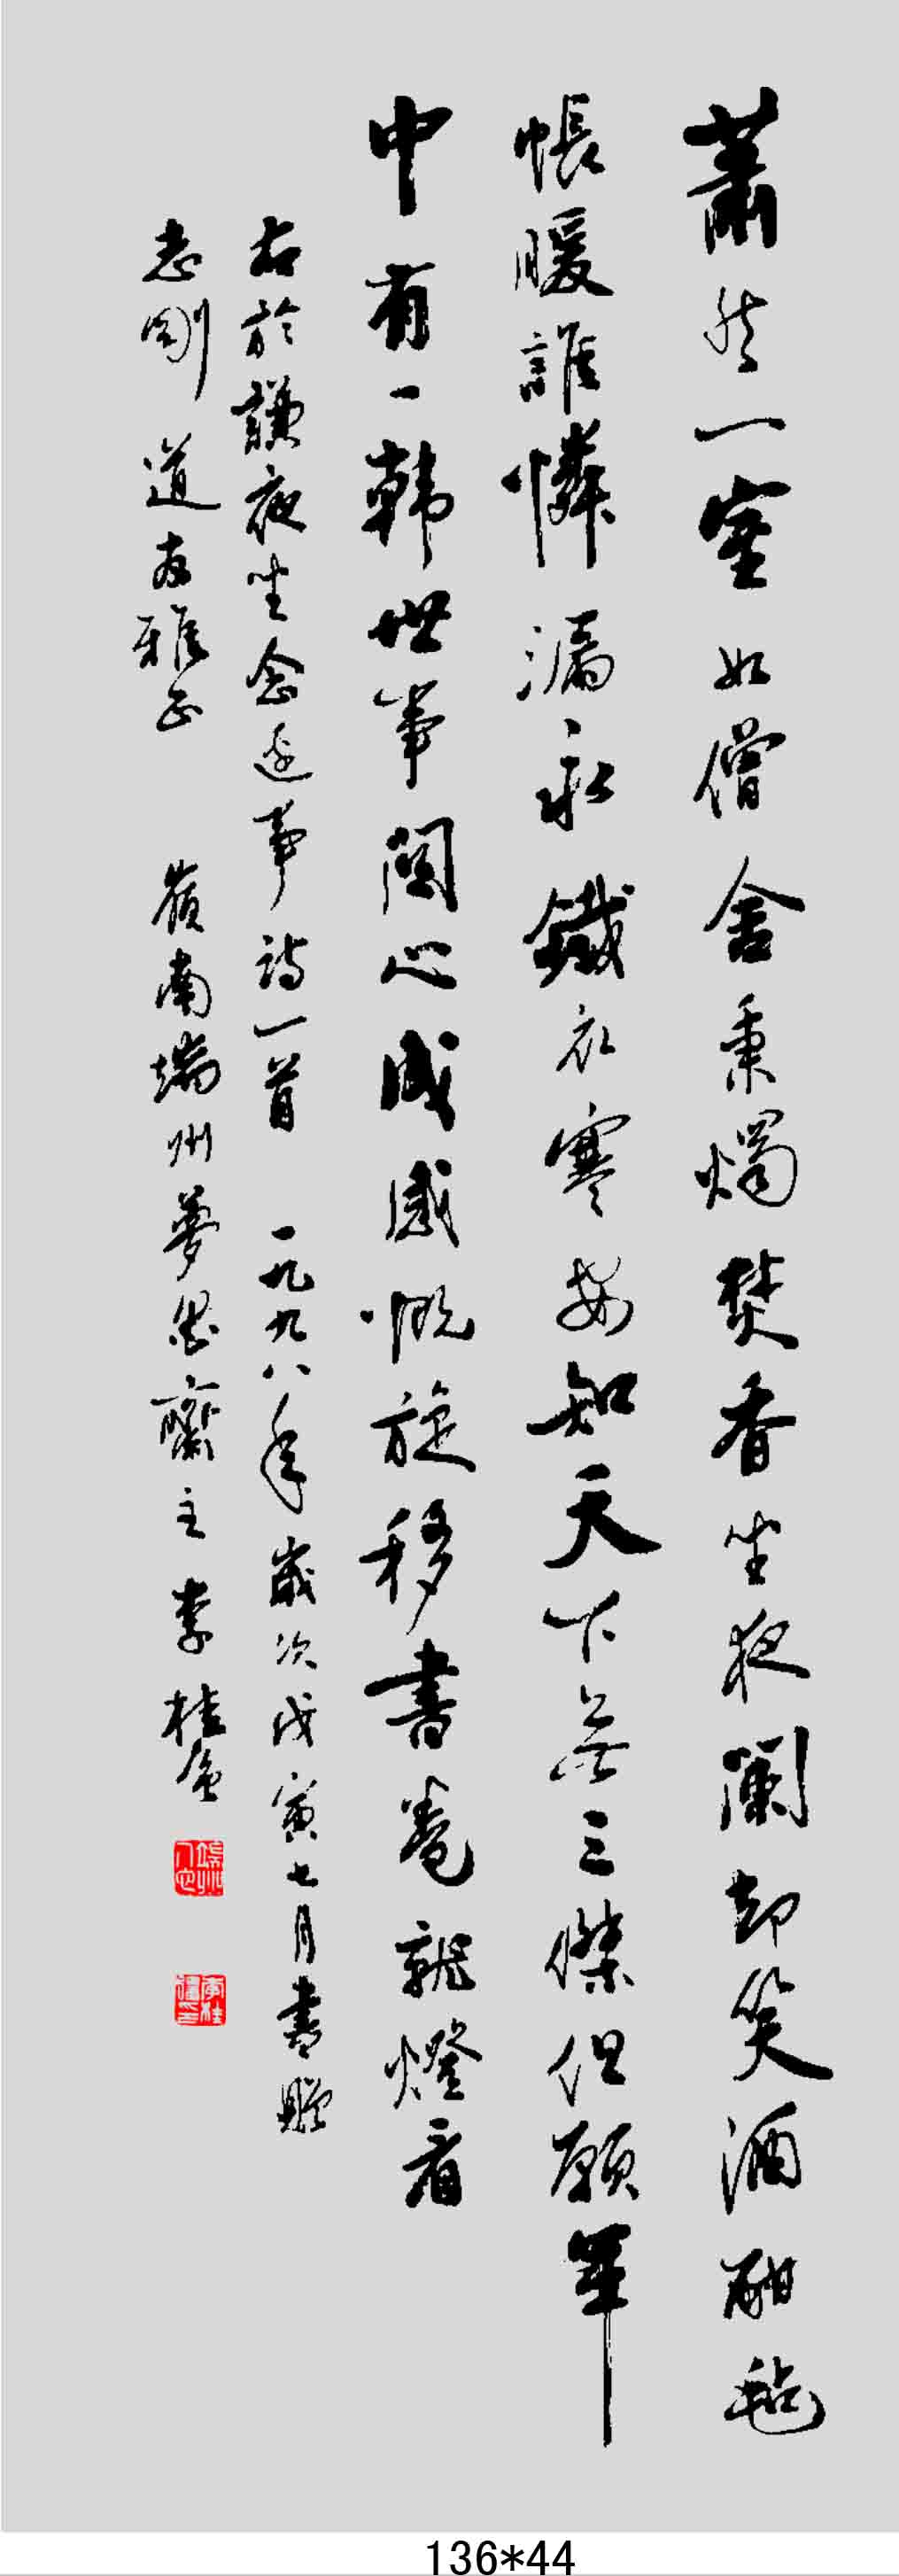 蕭然一室如僧舍秉燭焚香坐夜闌却笑酒酣氈
帳暖誰憐漏永鐵衣寒要知天下無三傑但願軍
中有一韓世事關心成感慨旋移書卷就燈看
右於謙夜坐念邊事詩一首 一九九八年歲次戊寅七月書贈
志剛道友雅正 嶺南端州夢墨齋主李桂
136*44